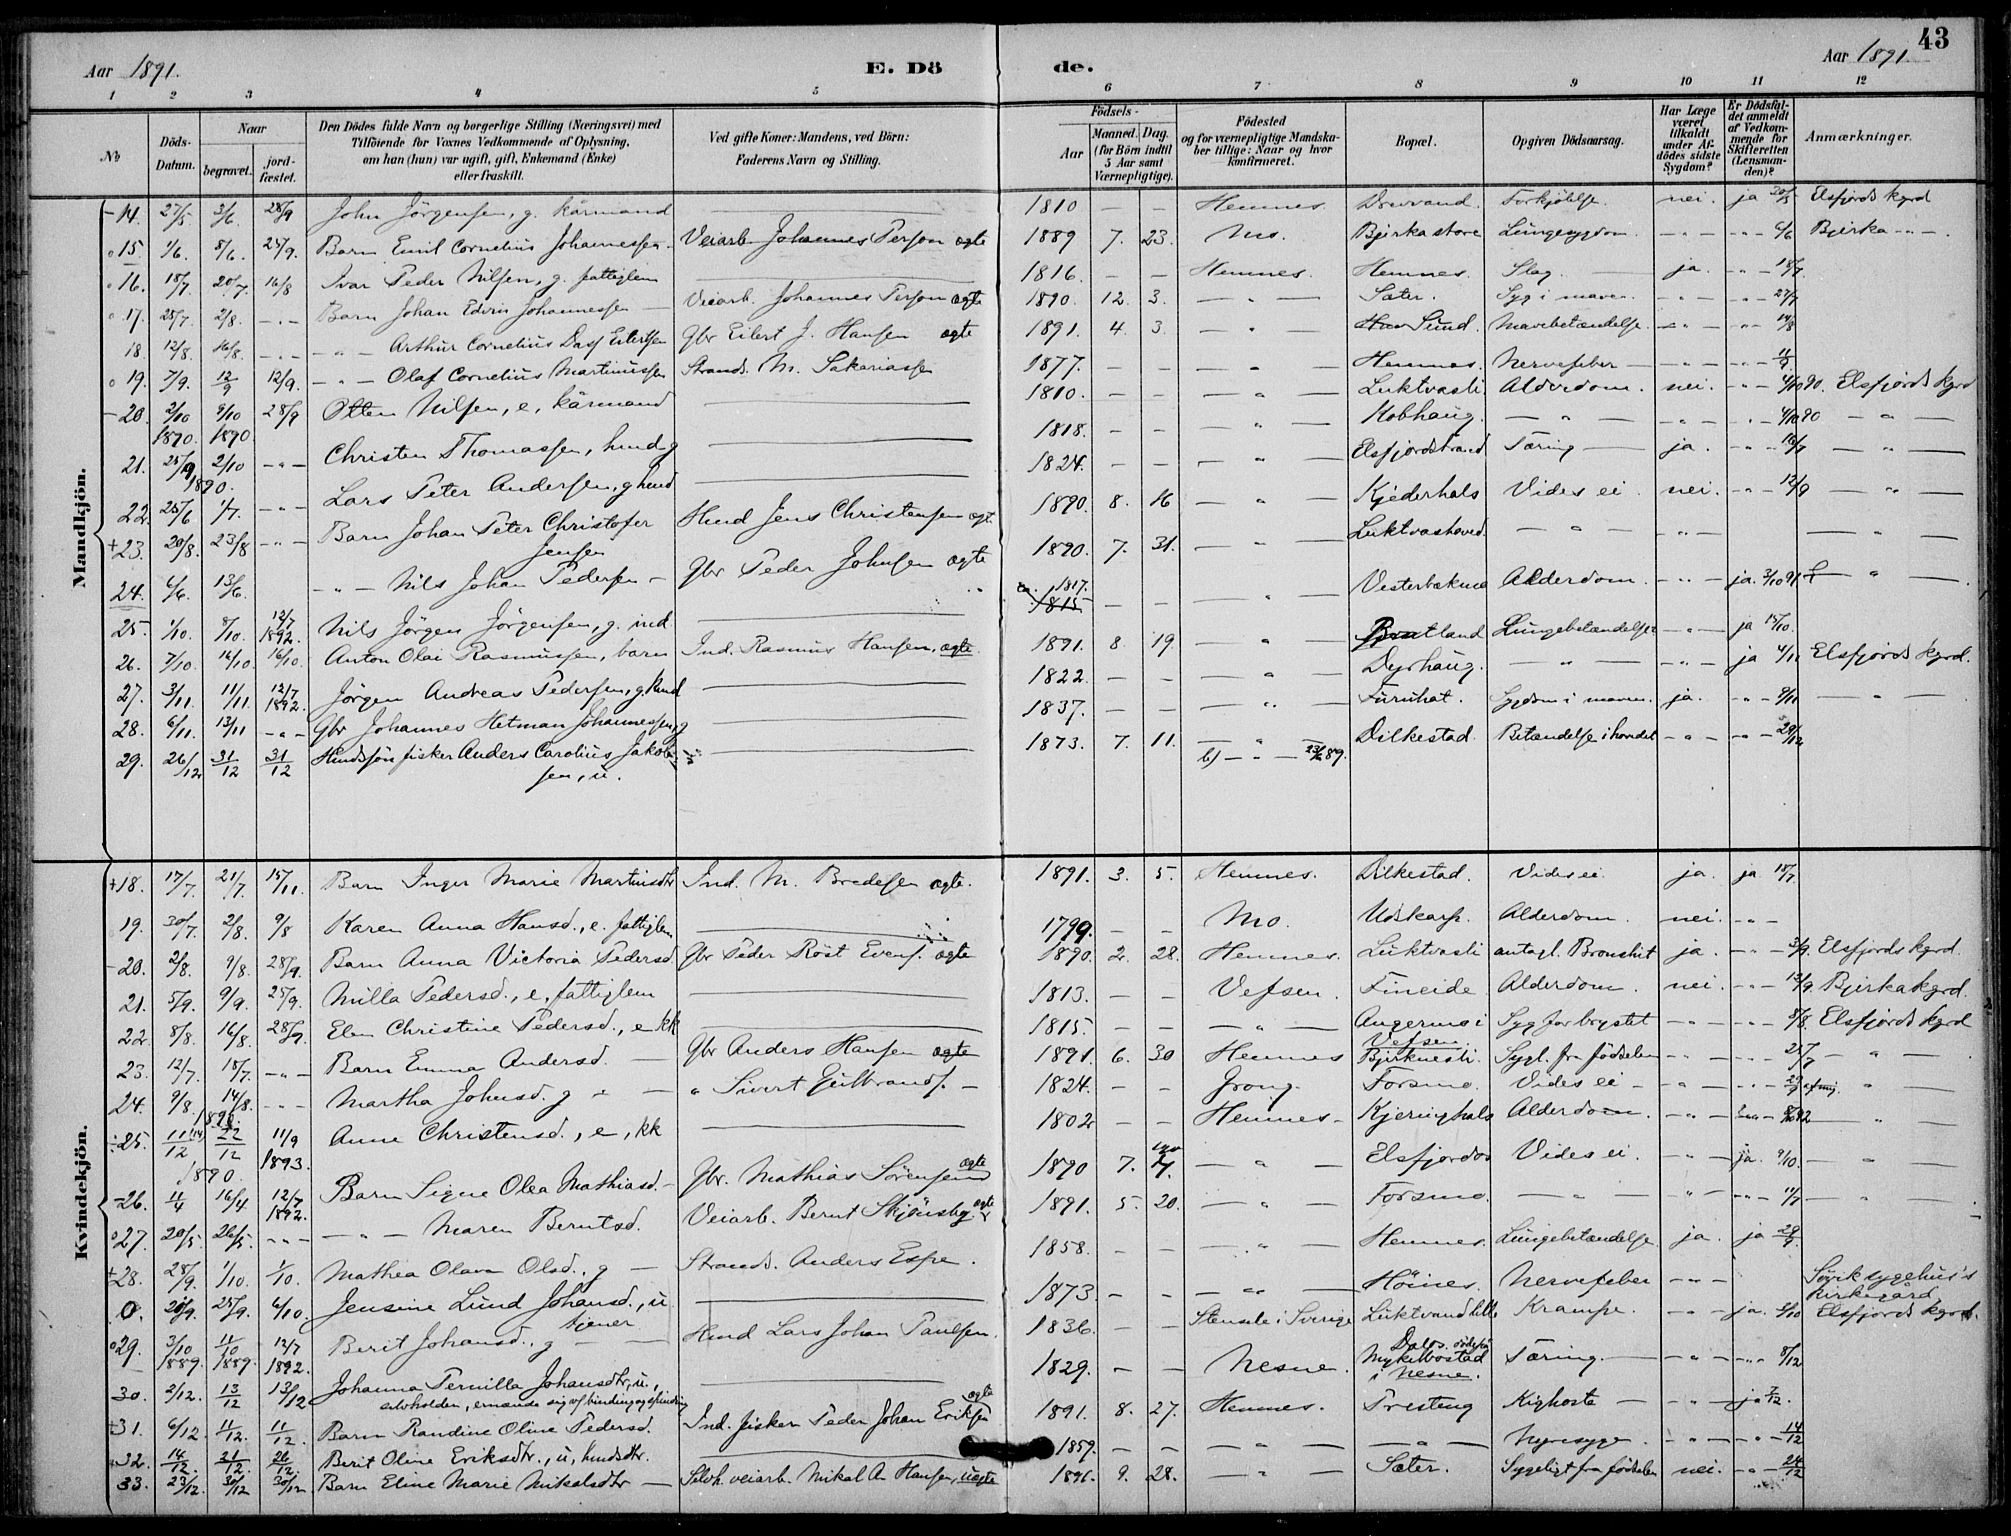 43
Aar 1891. E. Dö de. Aar 1891
1 2 3 4 5 6 7 8 9 10 11 12
No
Döds-Datum.
Naar
begravet.
jord-fæstet.
Den Dödes fulde Navn og borgerlige Stilling (Næringsvei) med
Tilföiende for Voxnes Vedkommende af Oplysning,
om han (hun) var ugift, gift, Enkemand (Enke)
eller fraskilt.
Ved gifte Koner: Mandens, ved Börn:
Faderens Navn og Stilling.
Födsels-
Aar
Maaned. Dag.
(for Börn indtil
5 Aar samt
Værnepligtige).
Födested
og for værnepligtige Mandska-
ber tillige: Naar og hvor
konfirmeret.
Bopæl.
Opgiven Dödsaarsag.
Har Læge
været
tilkaldt
under Af-
dödes sidste
Sygdom?
Er Dödsfal-
det anmeldt
af Vedkom-
mende for
Skifteretten
(Lensman-
den)?
Anmærkninger.
Mandkjön.
14. 27/5 3/6 28/9 John Jörgensen, g. kårmand 1810 — — Hemnes. Drevvand. Forkjölelse. nei. ja 20/5 Elsfjords kgrd
15. 1/6. 8/6. 25/9. Barn Emil Cornelius Johannessen Veiarb. Johannes Person ægte 1889 7. 23. Mo. Bjerka store Lungesygdom - " - - " - 6/6 Bjerka - " -
16. 18/7. 20/7. 16/8 Ivar Peder Nilsen, g. fattiglem 1816. — — Hemnes. Hemnes. Slag. ja. - " - 18/7
17. 28/7. 2/8. - " - Barn Johan Edvin Johannessen Veiarb. Johannes Person ægte 1890. 12. 3. — " — Sæter. Syg i maven. - " - - " - 27/7
18. 12/8. 16/8. - " - - " - Arthur Cornelius Dass Eilertsen Gbr Eilert J. Hansen ægte 1891. 4. 3. — " — Sund. Mavebetændelse - " - - " - 14/8
19. 7/9. 12/9 12/9. - " - Olaf Cornelius Martinussen Strands. M. Sakariassen 1877. — — — " — Hemnes. Nervefeber - " - - " - 11/9
20. 2/10 1890. 9/10 1890. 28/9 Otten Nilsen, e, kårmand 1810. — — — " — Luktvasli Alderdom. nei. - " - 4/10 90. Elsfjords kgrd
21. 25/9 1890. 2/10 - " - Christen Thomassen, husd g 1818. — — — " — Kobhaug. — " — - " - - " - 4/10 90 — " —
22. 25/6 1/7. - " - Lars Peter Andersen, g husd 1824. — — — " — Elsfjordstrand Tæring ja. - " - 16/7 — " —
23. 20/8. 23/8 - " - Barn Johan Peter Christofer Jensen Husd Jens Christensen ægt 1890. 8. 16 — " — Kjederhals Vides ei. nei. - " - 12/9 — " —
24. 6/6. 13/6. - " - Nils Johan Pedersen Gbr Peder Johnsen ægte 1890. 7. 31. — " — Luktvashoved. — " — - " - — " —
25. 1/10. 8/10. 12/7 1892. Nils Jörgen Jörgensen, g. ind. 1817. 1815 — — — " — Alderdom. - " - ja. 3/10 91 — " —
26. 7/10. 16/10. 16/10. Anton Olai Rasmussen, barn Ind. Rasmus Hansen, ægte. 1891. 8. 19. — " — Bratland Lungebetændelse - " - ja 15/10.
27. 3/11. 11/11. 12/7 1892. Jörgen Andreas Pedersen, g. husd 1822. — — — " — Dyrhaug. — " — ja 4/11 Elsfjords kgrd.
28. 6/11. 13/11 - " - Gbr Johannes Hetman Johannessen, g 1837. — — — " — Furuhat. Sygdom i maven. ja. - " - 9/11 — " —
29. 26/12 31/12 31/12 Husdsjön fisker Anders Carolius Jakobsen, u. 1873. 7. 11. — " — 89. Dilkestad. Betændelse i hovdet - " - - " - 28/12
Kvindekjön.
18. 17/7. 21/7. 15/11. Barn Inger Marie Martinsdtr Ind. M. Bredesen ægte. 1891. 3. 5. Hemnes. Dilkestad. Vides ei ja. ja 18/7
19. 30/7. 2/8. 9/8 Karen Anna Hansd., e. fattiglem 1799. — — Mo. Udskarp. Alderdom. nei. - " -
20. 2/8. 9/8. 28/9. Barn Anna Victoria Pedersd. Gbr Peder Röst Evens. ægte 1890. 2. 28. Hemnes. Luktvasli antagl. Bronchit ja. - " - 3/9. Elsfjords kgrd.
21. 5/9. 9/9. 25/9. Milla Pedersd., e, fattiglem 1813. — — Vefsen. Fineide Alderdom. nei. - " - 13/9. Bjerka kgrd.
22 8/8. 16/8. 28/9. Elen Christine Pedersd., e kk 1815. — — — " — Angermo i Vefsen. Syg for brystet - " - - " - 8/8. Elsfjords kgrd
23. 12/7. 18/7. - " - Barn Emma Andersd. Gbr Anders Hansen ægte 1891. 6. 30 Hemnes Bjerknesli. Sygl. fra födselen - " - - " - 25/7 — " —
24. 9/8. 14/8. - " - Martha Johnsd. g " Sivert Gulbrands. 1824. — — Grong. Forsmo. Vides ei - " - - " - — " —
25. 11/12 1890 22/12 11/9 1893. Anne Christensd., e, kk 1802 — — Hemnes. Kjeringhals Alderdom. - " - — " —
26. 1890. 4/4 16/4 12/7 1892. Barn Signe Olea Mathiasd. Gbr. Mathias Sörensen ægte 1890 7. 4. — " — Elsfjordos Vides ei. - " - ja. 9/10. — " —
27. 20/5. 26/5. - " - — " — Maren Berntsd. Veiarb. Bernt Skjönsby ægte 1891. 5. 20. — " — Forsmo. — " — - " - - " - 11/7 — " —
28. 28/9. 1/10. 1/10. Mathea Olava Olsd., g Strands. Anders Espe. 1858. — — — " — Hemnes. Lungebetændelse. ja. ja 29/9.
0. 20/9. 25/9. 4/10. Jensine Lund Johansd., u. tjener 1873. — — — " — Höines. Nervefeber - " - Sövik sygehus's kirkegård
29. 3/10 1889. 11/10 1889. 12/7 1892. Berit Johansd., g Husd Lars Johan Paulsen. 1836. — — Stensele i Sverige Luktvand lille Krampe. - " - ja. 5/10 Elsfjords kgrd.
30. 2/12. 13/12 13/12 Johanna Pernilla Johansdtr, u., selvholden, ernærede sig vf binding og spinding 1829. — — Nesne. Mykelbostad i Nesne. Tæring. - " - - " - 8/12
31. 6/12. 11/12. 11/12. Barn Randine Oline Pedersd. Ind. fisker Peder Johan Eriksen ægte 1891. 8. 27. Hemnes. Presteng Kighoste - " - ja 7/12.
32. 14/12. 21/12. 26/12. Berit Oline Eriksdtr., u, husdsdtr. 1859. — — — " — — " — Nyresyge. - " - - " - 14/12
33. 23/12. 30/12 30/12 Barn Eline Marie Mikalsdtr Selvh. veiarb. Mikal A Hansen, uægte 1891. 9. 28. — " — Sæter. Sygeligt fra födselen nei. - " - 24/12